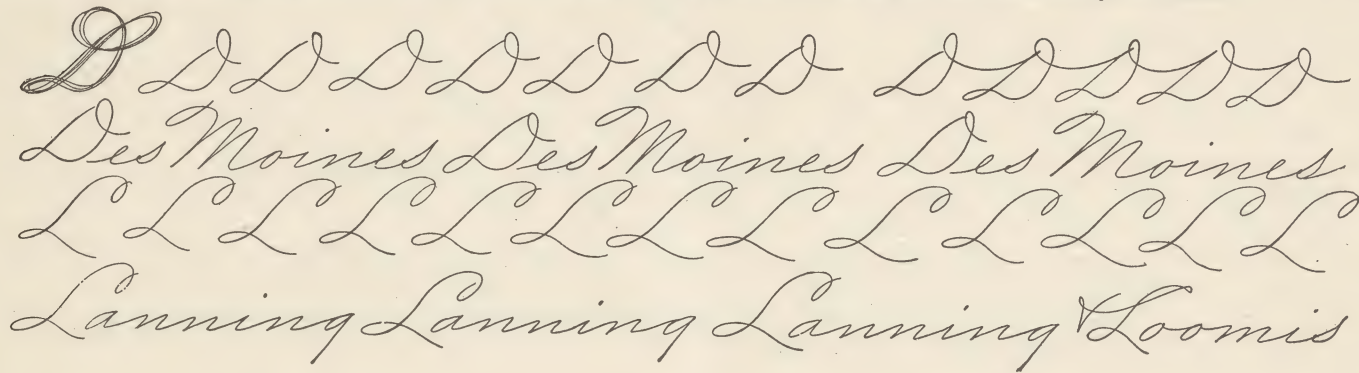 D D D D D D D D D D D D D
Des Moines Des Moines Des Moines
L L L L L L L L L L L L L
Lanning Lanning Lanning Loomis